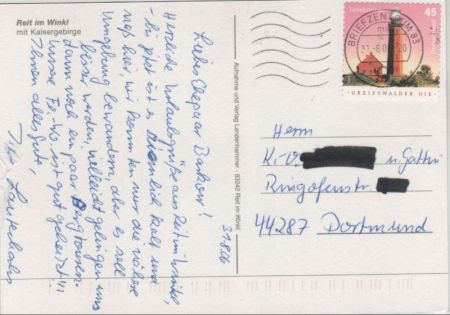 Reit im Winkl
mit Kaisergebirge
Liebes Ehepaar
Herzliche Urlaubsgrüße aus Reit im Winkl,
hier ist es ziemlich kalt und
naß hier, wir konnten nur die nähere
Umgebung bewandern, aber es soll
besser werden, vielleicht gelingen uns
dann noch ein paar Bergtouren.
Unsere Fe-Wo ist gut geheizt!!
Ihnen alles Gute,
Ihre
Aufnahme und Verlag Landenhammer 83242 Reit im Winkl
BRIEFZENTRUM 83
45
GREIFSWALDER OIE
Herrn
u. Gattin
Ringofenstr.
44287 Dortmund